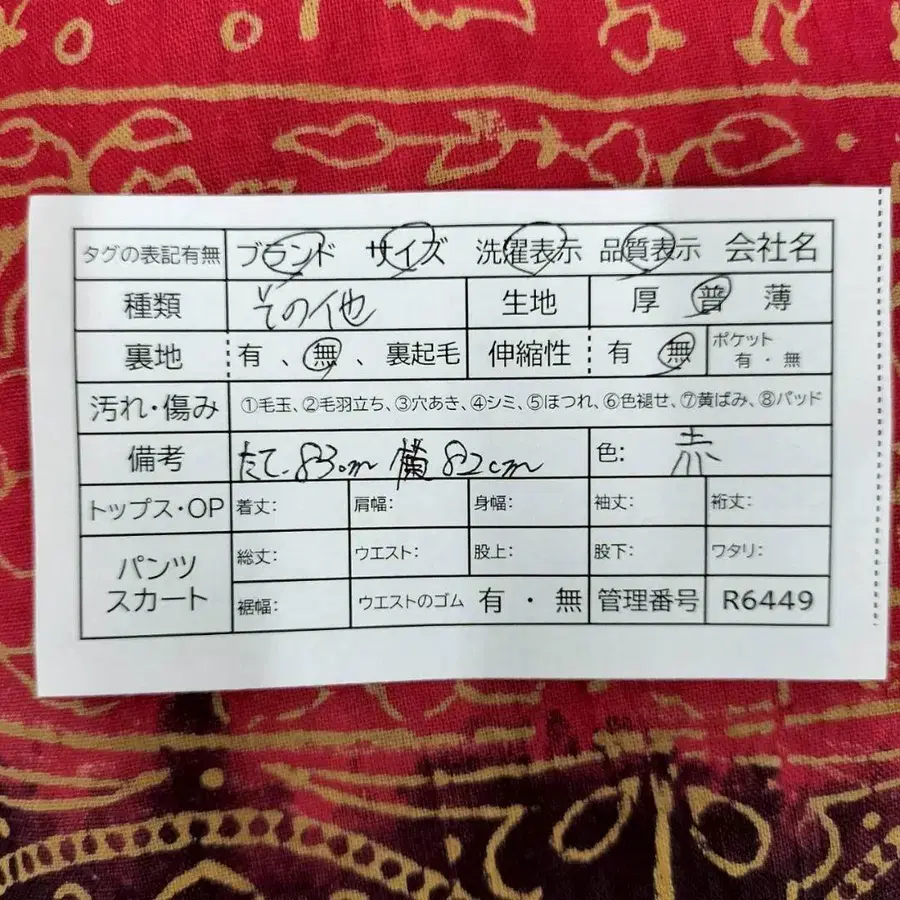 タグの表記有無 ブランド サイズ 洗濯表示 品質表示 会社名
種類 その他 生地 厚 普 薄
裏地 有 、 無 、 裏起毛 伸縮性 有 無 ポケット 有 ・ 無
汚れ・傷み ①毛玉、②毛羽立ち、③穴あき、④シミ、⑤ほつれ、⑥色褪せ、⑦黄ばみ、⑧パッド
備考 たて 83cm 横 82cm 色: 赤
トップス・OP 着丈: 肩幅: 身幅: 袖丈: 裄丈:
パンツ スカート 総丈: ウエスト: 股上: 股下: ワタリ:
裾幅: ウエストのゴム 有 ・ 無 管理番号 R6449